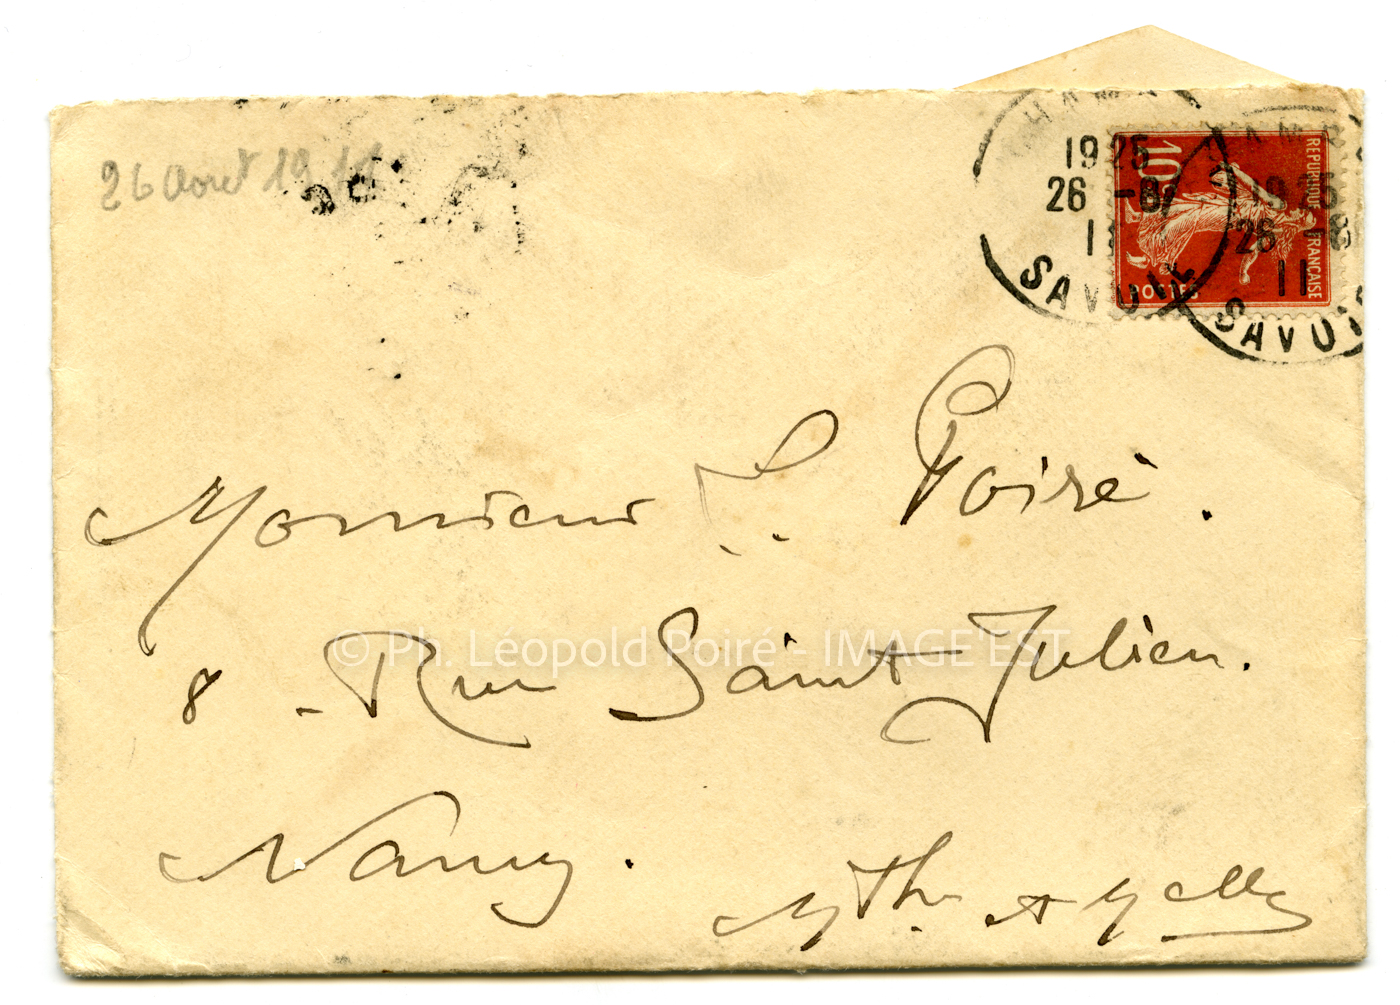 26 Aout 1911
CHAMB
1925
26 -8
11
SAVOIE
10c
REPUBLIQUE FRANÇAISE
POSTES
CHAMBE
1925
26 -8
11
SAVOIE
Monsieur L. Poiré.
8 - Rue Saint Julien.
Nancy.
Mthe & Mselle
© Ph. Léopold Poiré - IMAGE'EST